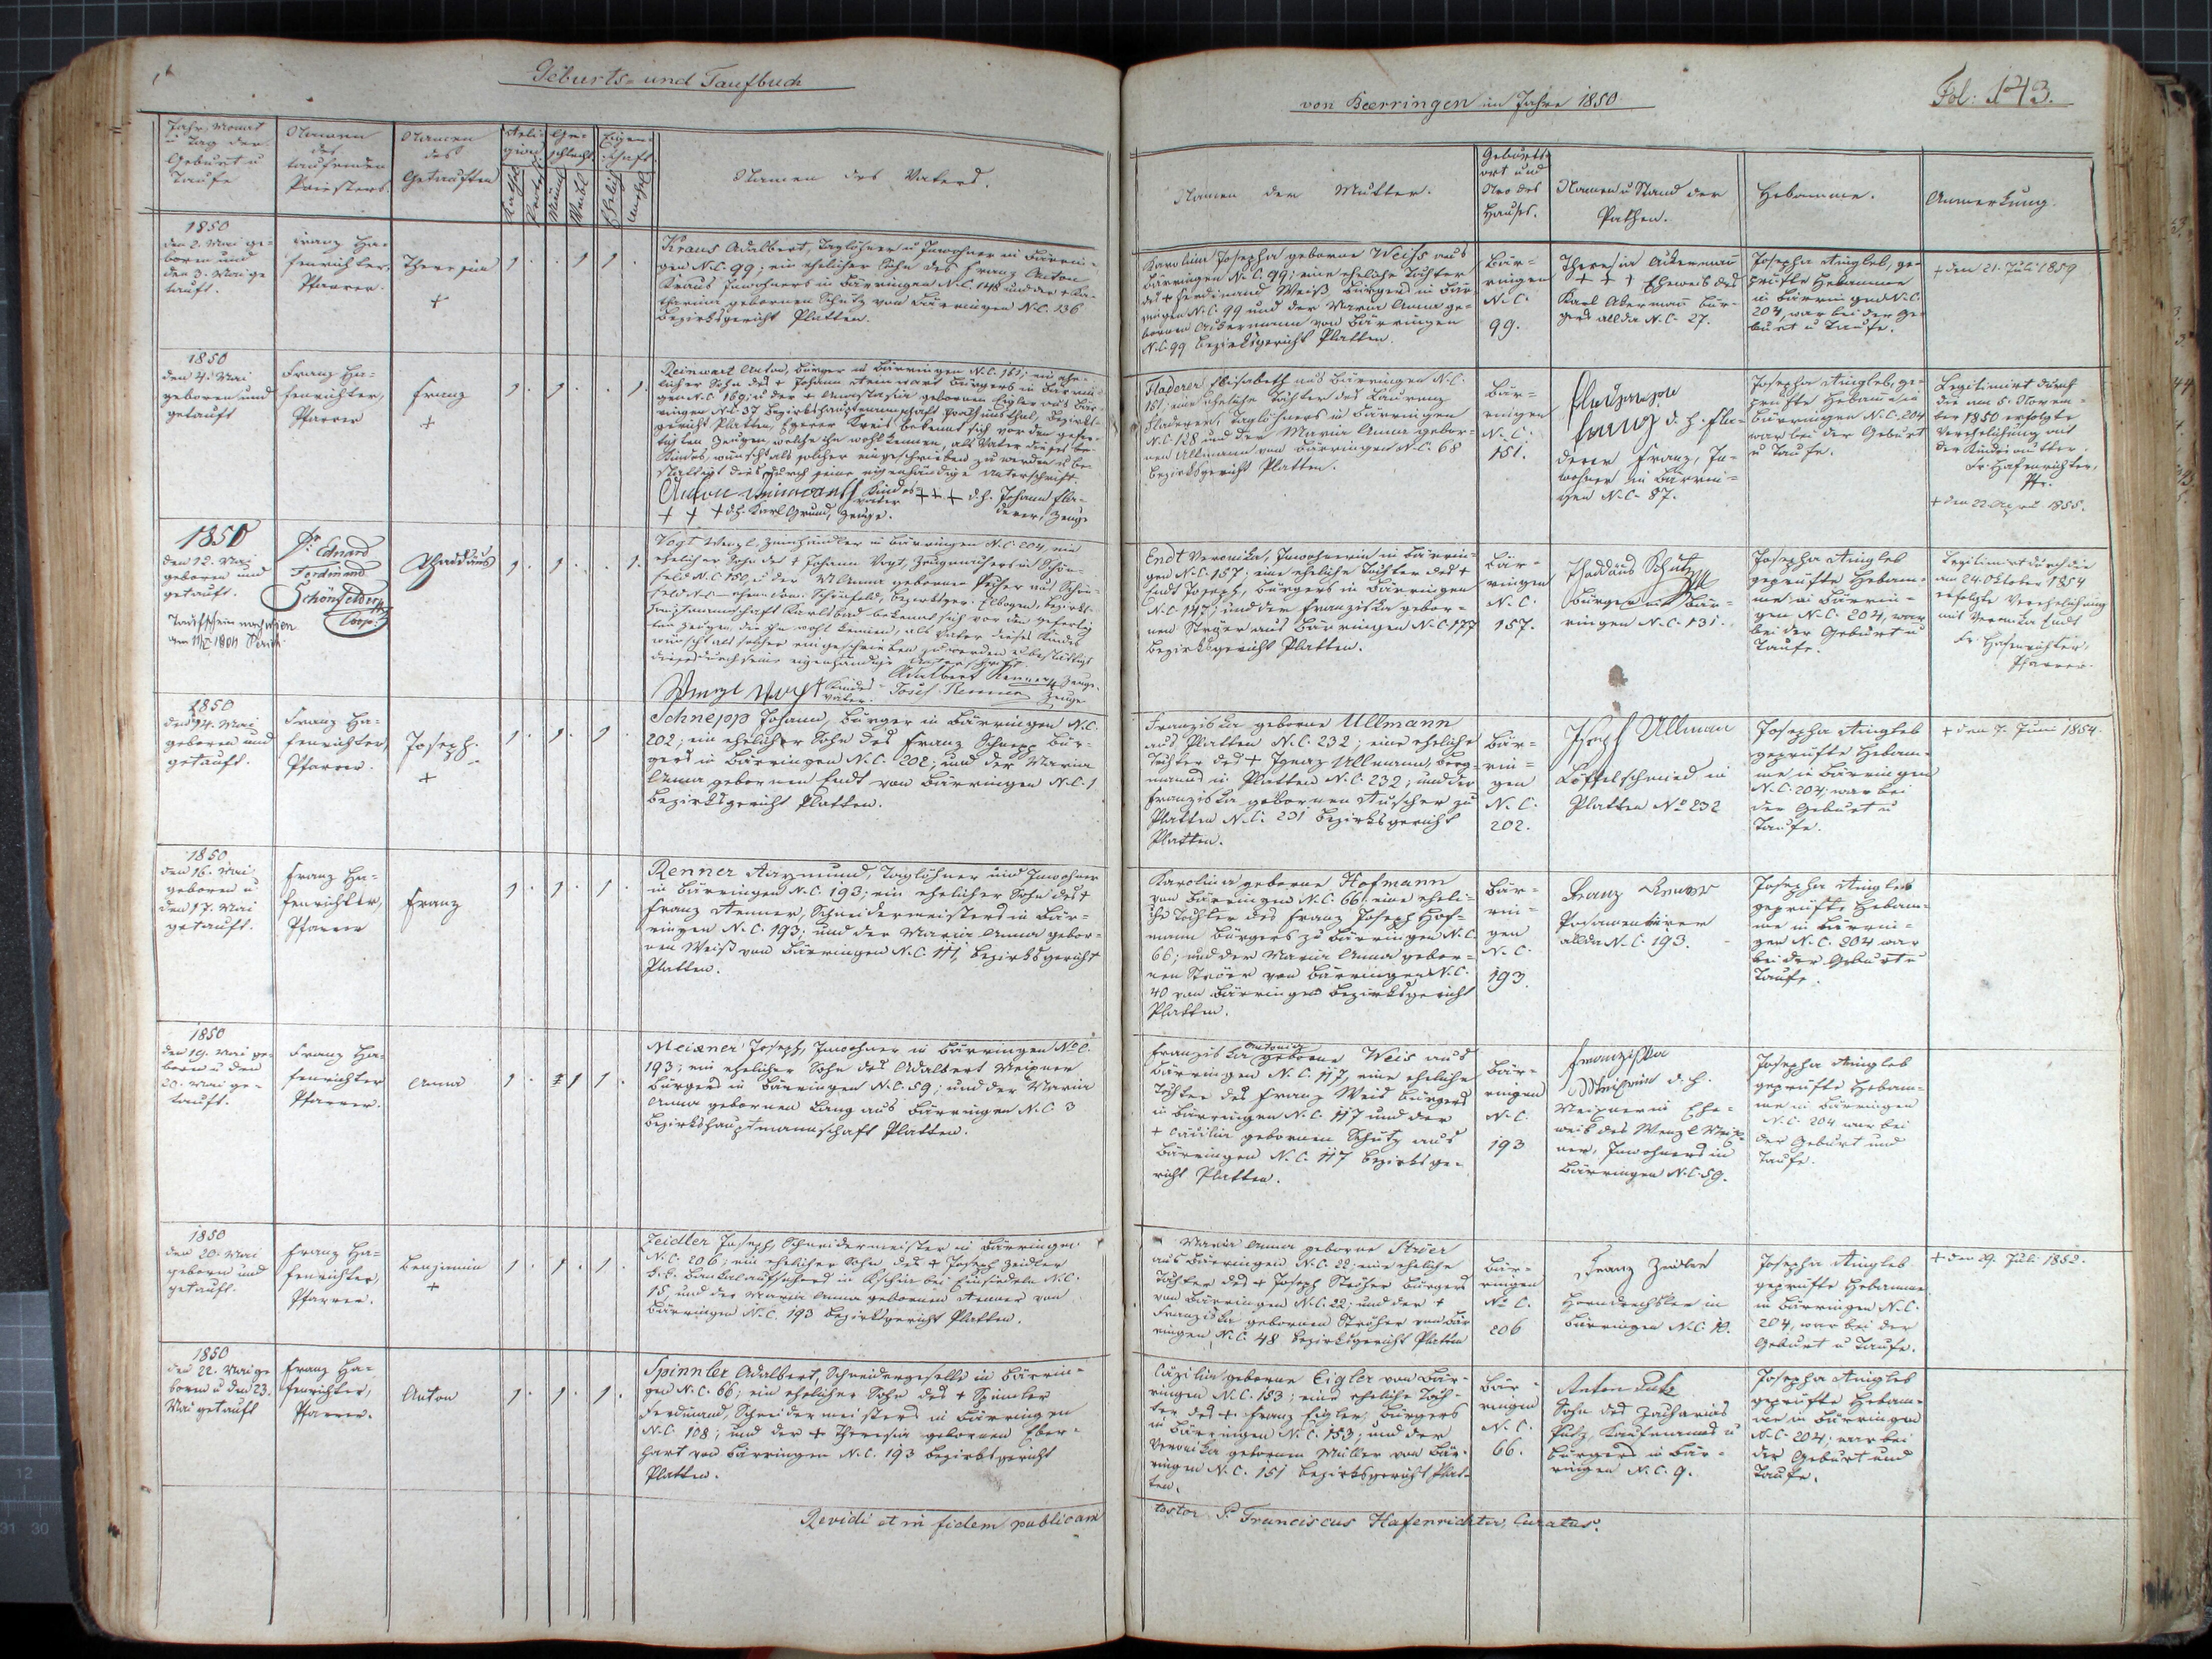 Geburts- und Taufbuch
von Baerringen im Jahre 1850
Fol: 143.
Jahr, Monat
u Tag der
Geburt u
Taufe
Namen
des
taufenden
Priesters
Namen
des
Getauften
Reli-
gion.
Kathol.
Ge-
schlecht.
Männl
Weibl
Eigen-
schaft.
Ehelich
Unehel
Namen des Vaters.
Namen der Mutter.
Geburts-
ort und
Nro des
Hauses.
Namen u Stand der
Pathen.
Hebamme.
Anmerkung.
1850
den 2. Mai ge-
boren und
den 3. Mai ge
tauft.
Franz Ha-
fenrichter,
Pfarrer.
Theresia
+
Kraus Adalbert, Taglöhner u Inwohner in Bärrin-
gen N.C. 99; ein ehelicher Sohn des Franz Anton
Kraus Inwohners in Bärringen N.C. 148 und der + Ka-
tharina gebornen Schütz von Bärringen N.C. 136
Bezirksgericht Platten.
Karolina Josepha geborne Weiss aus
Bärringen N.C. 99; eine eheliche Tochter
des + Ferdinand Weiß Bürgers in Bär-
ringen N.C. 99 und der Maria Anna ge-
bornen Ackermann von Bärringen
N.C. 99 Bezirksgericht Platten.
Bär-
ringen
N.C.
99.
Theresia Ackermann
+ + + Eheweib des
Karl Akermann Bür-
gers allda N.C. 27.
Josepha Ringleb, ge-
prüfte Hebamme
in Bärringen N.C.
204, war bei der Ge-
burt u Taufe.
+ den 21. Juli 1859
1850
den 4. Mai
geboren und
getauft
Franz Ha-
fenrichter,
Pfarrer
Franz
+
Reinwart Anton, Bürger in Bärringen N.C. 151; ein ehe-
licher Sohn des + Johann Reinwart Bürgers in Bärrin-
gen N.C. 169; u der + Anastasia gebornen Eigler aus Bär-
ringen N.C. 37 Bezirkshauptmannschaft Joachimsthal, Bezirks-
gericht Platten, Egerer Kreis bekennt sich vor den gefer-
tigten Zeugen, welche ihn wohl kennen, als Vater dieses
Kindes, wünscht als solcher eingeschrieben zu werden u be-
stättigt dies durch seine eigenhändige Unterschrift.
Kindes
vater
+ + + d.h. Johann Fla-
derer, Zeuge
+ + + d.h. Karl Grund, Zeuge.
Fladerer Elisabeth aus Bärringen N.C.
151; eine eheliche Tochter des Laurenz
Fladerer, Taglöhners in Bärringen
N.C. 128 und der Maria Anna gebor-
nen Ullmann von Bärringen N.C. 68
Bezirksgericht Platten.
Bär-
ringen
N.C.
151.
d.h. Fla-
derer Franz, In-
wohner in Bärrin-
gen N.C. 87.
Josepha Ringleb, ge-
prüfte Hebame in
Bärringen N.C. 204
war bei der Geburt
u Taufe.
Legitimirt durch
die am 5. Novem-
ber 1850 erfolgte
Verehelichung mit
der Kindesmutter.
Fr. Hafenrichter,
Pfr.
+ den 22 April 1855.
1850
den 12. Mai
geboren und
getauft.
Taufschein nach Wien
Eduard
Ferdinand
Schönfelder
Coop.
Thaddäus
Vogt Wenzl, Zwirnhändler in Bärringen N.C. 204, ein
ehelicher Sohn des + Johann Vogt, Zeugmachers in Schön-
feld N.C. 150, u der M Anna gebornen
aus Schön-
feld N.C.
Bezirksger. Elbogen, Bezirks-
hauptmannschaft Karlsbad bekennt sich vor den gefertig-
ten Zeugen, die ihn wohl kennen, als Vater dieses Kindes
wünscht als solcher eingeschrieben zu werden u bestättigt
dieses durch seine eigenhändige Unterschrift.
Adalbert Renner Zeuge.
Wenzl Vogt Kindes-
vater.
Josef Renner Zeuge
Endt Veronika, Inwohnerin in Bärrin-
gen N.C. 157; eine eheliche Tochter des +
Endt Joseph, Bürgers in Bärringen
N.C. 147; und der Franziska gebor-
nen Ströer aus Bärringen N.C. 177
Bezirksgericht Platten.
Bär-
ringen
N.C.
157.
Thaddäus Schütz
Bürger in Bär-
ringen N.C. 131.
Josepha Ringleb
geprüfte Hebam-
me in Bärrin-
gen N.C. 204, war
bei der Geburt u
Taufe.
Legitimirt durch die
am 24. Oktober 1854
erfolgte Verehelichung
mit Veronika Endt
Fr. Hafenrichter,
Pfarrer.
1850
den 14. Mai
geboren und
getauft.
Franz Ha-
fenrichter,
Pfarrer.
Joseph.
+
Schnepp Johann, Bürger in Bärringen N.C.
202; ein ehelicher Sohn des Franz Schnepp Bür-
gers in Bärringen N.C. 202; und der Maria
Anna gebornen Endt von Bärringen N.C. 1
Bezirksgericht Platten.
Franziska geborne Ullmann
aus Platten N.C. 232; eine eheliche
Tochter des + Ignaz Ullmann, Berg-
manns in Platten N.C. 232; und der
Franziska gebornen Ruscher zu
Platten N.C. 231 Bezirksgericht
Platten.
Bär-
rin-
gen
N.C.
202.
Joseph Ullman
Löffelschmied in
Platten No 232
Josepha Ringleb
geprüfte Hebam-
me in Bärringen
N.C. 204; war bei
der Geburt u
Taufe.
+ den 7. Juni 1854.
1850
den 16. Mai
geboren u
den 17. Mai
getauft.
Franz Ha-
fenrichter,
Pfarrer
Franz
Renner Raymund, Taglöhner und Inwohner
in Bärringen N.C. 193; ein ehelicher Sohn des +
Franz Renner, Schneidermeisters in Bär-
ringen N.C. 193; und der Maria Anna gebor-
nen Weiß von Bärringen N.C. 111, Bezirksgericht
Platten.
Karolina geborne Hofmann
von Bärringen N.C. 66; eine eheli-
che Tochter des Franz Joseph Hof-
mann Bürgers zu Bärringen N.C.
66; und der Maria Anna gebor-
nen Ströer von Bärringen N.C.
40 von Bärringen Bezirksgericht
Platten.
Bär-
rin-
gen
N.C.
193.
Franz Renner
Posamentirer
allda N.C. 193.
Josepha Ringleb
geprüfte Hebam-
me in Bärrin-
gen N.C. 204 war
bei der Geburt u
Taufe.
1850
den 19. Mai ge-
boren u den
20. Mai ge-
tauft.
Franz Ha-
fenrichter
Pfarrer.
Anna
Meixner Joseph, Inwohner in Bärringen No C.
193; ein ehelicher Sohn des Adalbert Meixner
Bürgers in Bärringen N.C. 59; und der Maria
Anna gebornen Lang aus Bärringen N.C. 3
Bezirkshauptmannschaft Platten.
Antonia
Franziska geborne Weis aus
Bärringen N.C. 117, eine eheliche
Tochter des Franz Weis Bürgers
in Bärringen N.C. 117 und der
+ Cäcilia gebornen Schütz aus
Bärringen N.C. 117 Bezirksge-
richt Platten.
Bär-
ringen
N.C.
193
Franziska
Meixnerin d.h.
Meixnerin Ehe-
weib des Wenzl Meix-
ner, Inwohners in
Bärringen N.C. 59.
Josepha Ringleb
geprüfte Hebam-
me in Bärringen
N.C. 204 war bei
der Geburt und
Taufe.
1850
den 20. Mai
geboren und
getauft.
Franz Ha-
fenrichter,
Pfarrer.
Benjamin
+
Zeidler Joseph, Schneidermeister in Bärringen
N.C. 206; ein ehelicher Sohn des + Joseph Zeidler
k.k. Bankalaufsehers in
bei Einsiedeln N.C.
15, und der Maria Anna gebornen Renner von
Bärringen N.C. 193 Bezirksgericht Platten.
Maria Anna geborne Ströer
aus Bärringen N.C. 22; eine eheliche
Tochter des + Joseph Ströher Bürgers
von Bärringen N.C. 22; und der +
Franziska gebornen Ströher von Bär
ringen N.C. 48 Bezirksgericht Platten
Bär-
ringen
No C.
206
Franz Zeidler
Horndrechsler in
Bärringen N.C. 10.
Josepha Ringleb
geprüfte Hebamme
in Bärringen N.C.
204, war bei der
Geburt u Taufe.
+ den 29. Juli 1852.
1850
den 22. Mai ge
boren u den 23.
Mai getauft
Franz Ha-
fenrichter,
Pfarrer.
Anton
Spinnler Adalbert, Schneidergeselle in Bärrin-
gen N.C. 66; ein ehelicher Sohn des + Spinnler
Ferdinand, Schneidermeisters in Bärringen
N.C. 108; und der + Theresia gebornen Eber-
hart von Bärringen N.C. 193 Bezirksgericht
Platten.
Cäzilia geborne Eigler von Bär-
ringen N.C. 153; eine eheliche Toch-
ter des + Franz Eigler, Bürgers
in Bärringen N.C. 153; und der
Veronika gebornen Müller von Bär-
ringen N.C. 151 Bezirksgericht Plat-
ten.
Bär-
ringen
N.C.
66.
Anton Putz
Sohn des Zacharias
Putz, Kaufmanns u
Bürgers in Bär-
ringen N.C. 9.
Josepha Ringleb
geprüfte Hebam-
me in Bärringen
N.C. 204; war bei
der Geburt und
Taufe.
Revidi et in fidem publicam
testor P. Franciscus Hafenrichter, Curatus.